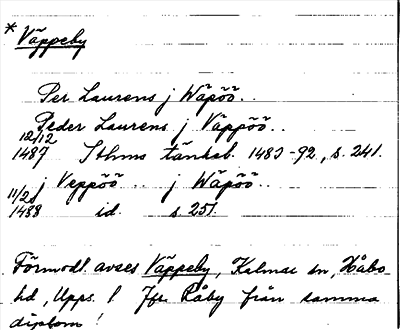 * Väppeby
Per Laurens j Wäpöö..
Peder Laurens j Väppöö..
12/12
1487 Sthms tänkeb. 1483-92, s. 241.
j Veppöö .. j Wäpöö..
11/2
1488 id. s 251.
Förmodl. avses Väppeby, Kalmar sn, Håbo
hd, Upps. l Jfr Råby från samma
diplom!